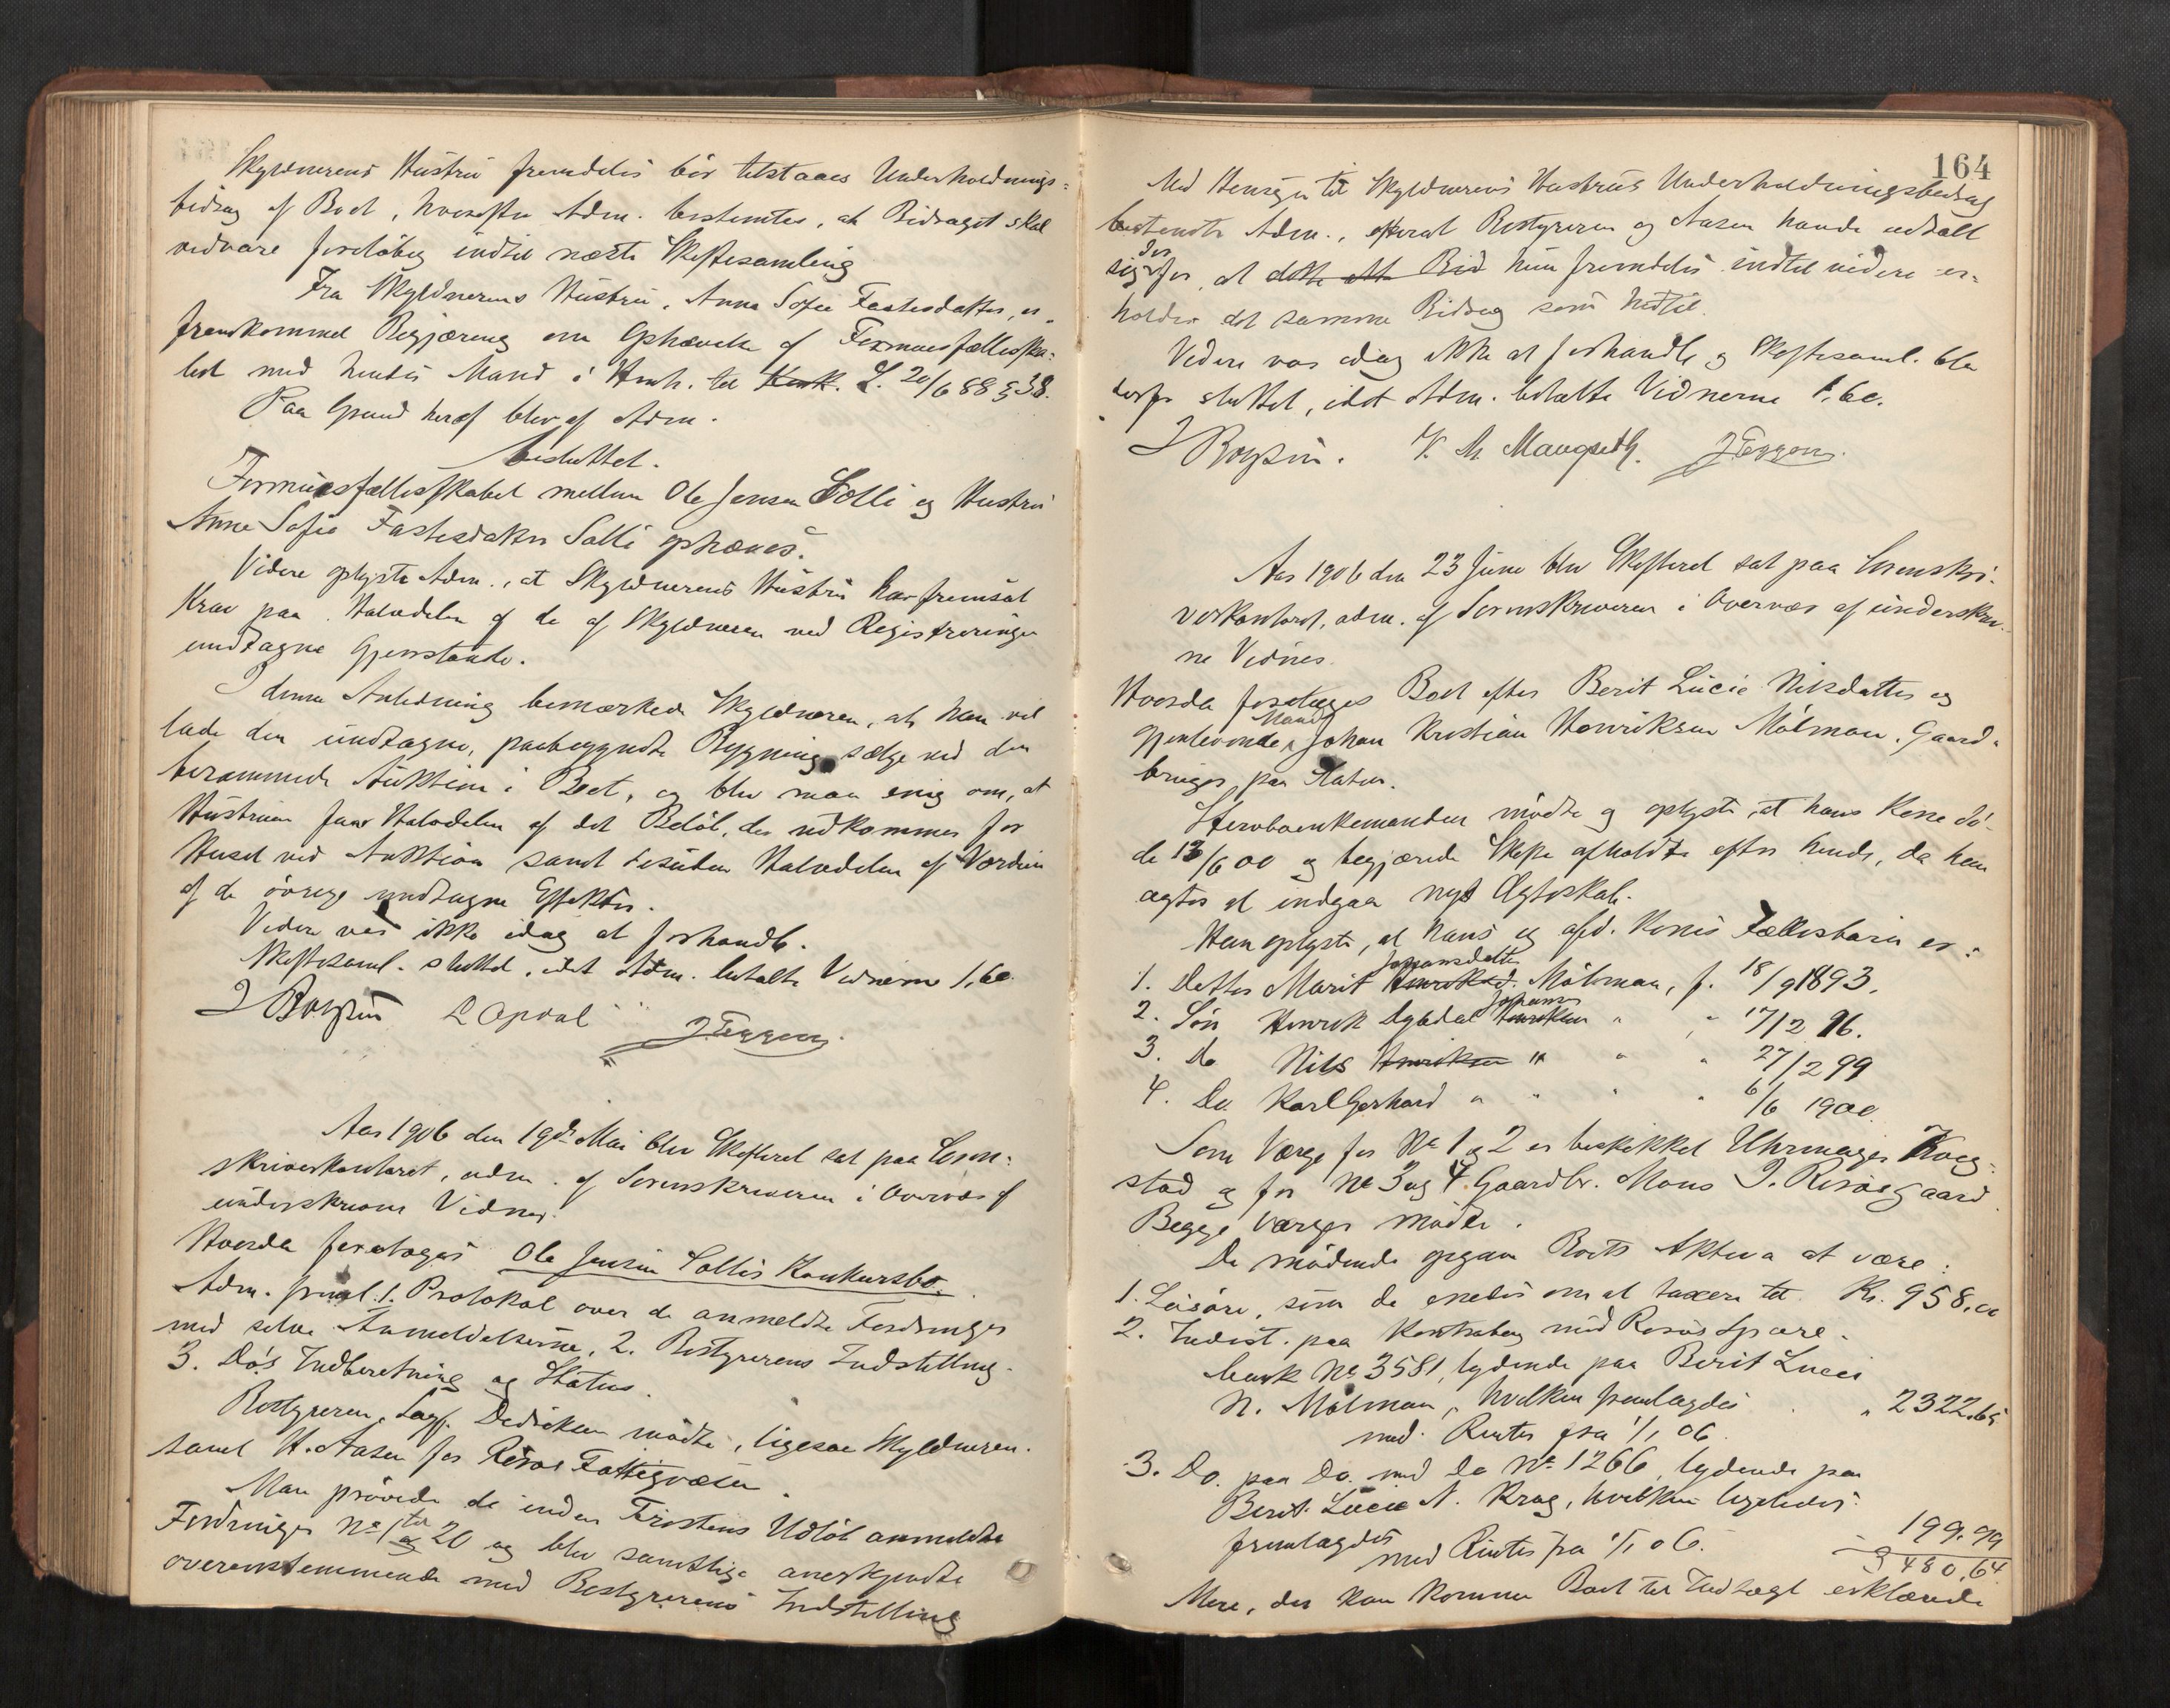 Skyldnerens Hustru fremdeles bör tilstaaes Underholdnings=
bidrag af Boet, hvorefter Adm. bestemtes, at Bidraget skal
vedvare foreløbig indtil næste Skiftesamling
Fra Skyldnerens Hustru, Anne Sofie Fastesdatter, er
fremkommet Begjæring om Ophævelse af Formuesfællesska-
bet med hendes Mand i Henh. til Konk. L. 20/6 88 § 38.
Paa Grund heraf blev af Adm.
besluttet.
Formuesfællesskabet mellem Ole Jensen Solli og Hustru
Anne Sofie Fastesdatter Solli ophæves.
Videre oplyste Adm., at Skyldnerens Hustru har fremsat
Krav paa Halvdelen af de af Skyldneren ved Registreringen
undtagne Gjenstande.
I denne Anledning bemærkede Skyldneren, at han vil
lade den undtagne, paabegyndte Bygning sælge ved den
berammede Auktion i Boet, og blev man enig om, at
Hustruen faar Halvdelen af det Beløb, der udkommer for
Huset ved Auktion samt desuden Halvdelen af Værdien
af de övrige undtagne Effekter.
Videre var ikke idag at forhandle.
Skiftesaml. sluttet, idet Adm. betalte Vidnerne 1,60.
L Opdal
Aar 1906 den 19de Mai blev Skifteret sat paa Soren-
skriverkontoret, adm. af Sorenskriveren i Overvær af
underskrevne Vidner.
Hvorda foretoges Ole Jensen Sollis Konkursbo.
Adm. freml. 1. Protokol over de anmeldte Fordringer
med selve Anmeldelserne, 2. Bestyrerens Indstilling
3. Do's Indberetning og Status.
Bestyreren, Sagf. Didriksen mødte, ligesaa Skyldneren.
samt H. Aasen for Röros Fattigvæsen.
Man prövede de inden Fristens Udløb anmeldte
Fordringer No 1 til 20 og blev samtlige anerkjendte
overensstemmende med Bestyrerens Indstilling
164
Med Hensyn til Skyldnerens Hustrus Underholdningsbidrag
bestemte Adm., efterat Bestyreren og Aasen havde udtalt
sig derfor, at dette att Bid hun fremdeles indtil videre er-
holder det samme Bidrag som hidtil.
Videre var idag ikke at forhandle og Skiftesaml. blev
derfor sluttet, idet Adm. betalte Vidnerne 1,60.
K. M. Maugseth.
Aar 1906 den 23 Juni blev Skifteret sat paa Sorenskri-
verkontoret, adm. af Sorenskriveren i Overvær af underskrev-
ne Vidner.
Hvorda foretoges Boet efter Berit Lucie Nilsdatter og
gjenlevende Mand Johan Kristian Henriksen Målman. Gaard-
bruger paa
Sterboenkemanden mødte og oplyste, at hans Kone dö-
de 13/6 00 og begjærede Skifte afholdt efter hende, da han
agter at indgaa nyt Ægteskab.
Han oplyste, at hans og afd. Kones Fællesbarn er:
1. Datter Marit Henriksd. Johansdatter Målman, f. 18/9 1893.
2. Sön Henrik Dybdal Henriksen Johansen " " 17/2 96.
3. Do Nils Henriksen " " " 27/2 99
4. Do. Karl Gerhard " " " " 6/6 1900
Som Værge for No 1 og 2 er beskikket Uhrmager Kveg-
stad og for No 3 og 4 Gaardbr. Mons J.
Begge Værger mødte.
De mødende opgav Boets Aktiva at være:
1. Løsöre, som de enedes om at taxere til Kr. 958,00
2. Indest. paa Kontrabog med Röros Spare-
bank No 3581, lydende paa Berit Lucie
N. Målman, hvilken fremlagdes " 2322.65
med Renter fra 1/1 06.
3. Do. paa Do. med Do No 1266, lydende paa
Berit Lucie N. Krog, hvilken ligeledes
fremlagdes 199.99
med Renter fra 1/1 06. 3480,64
Mere, der kan komme Boet til Indtægt erklærede